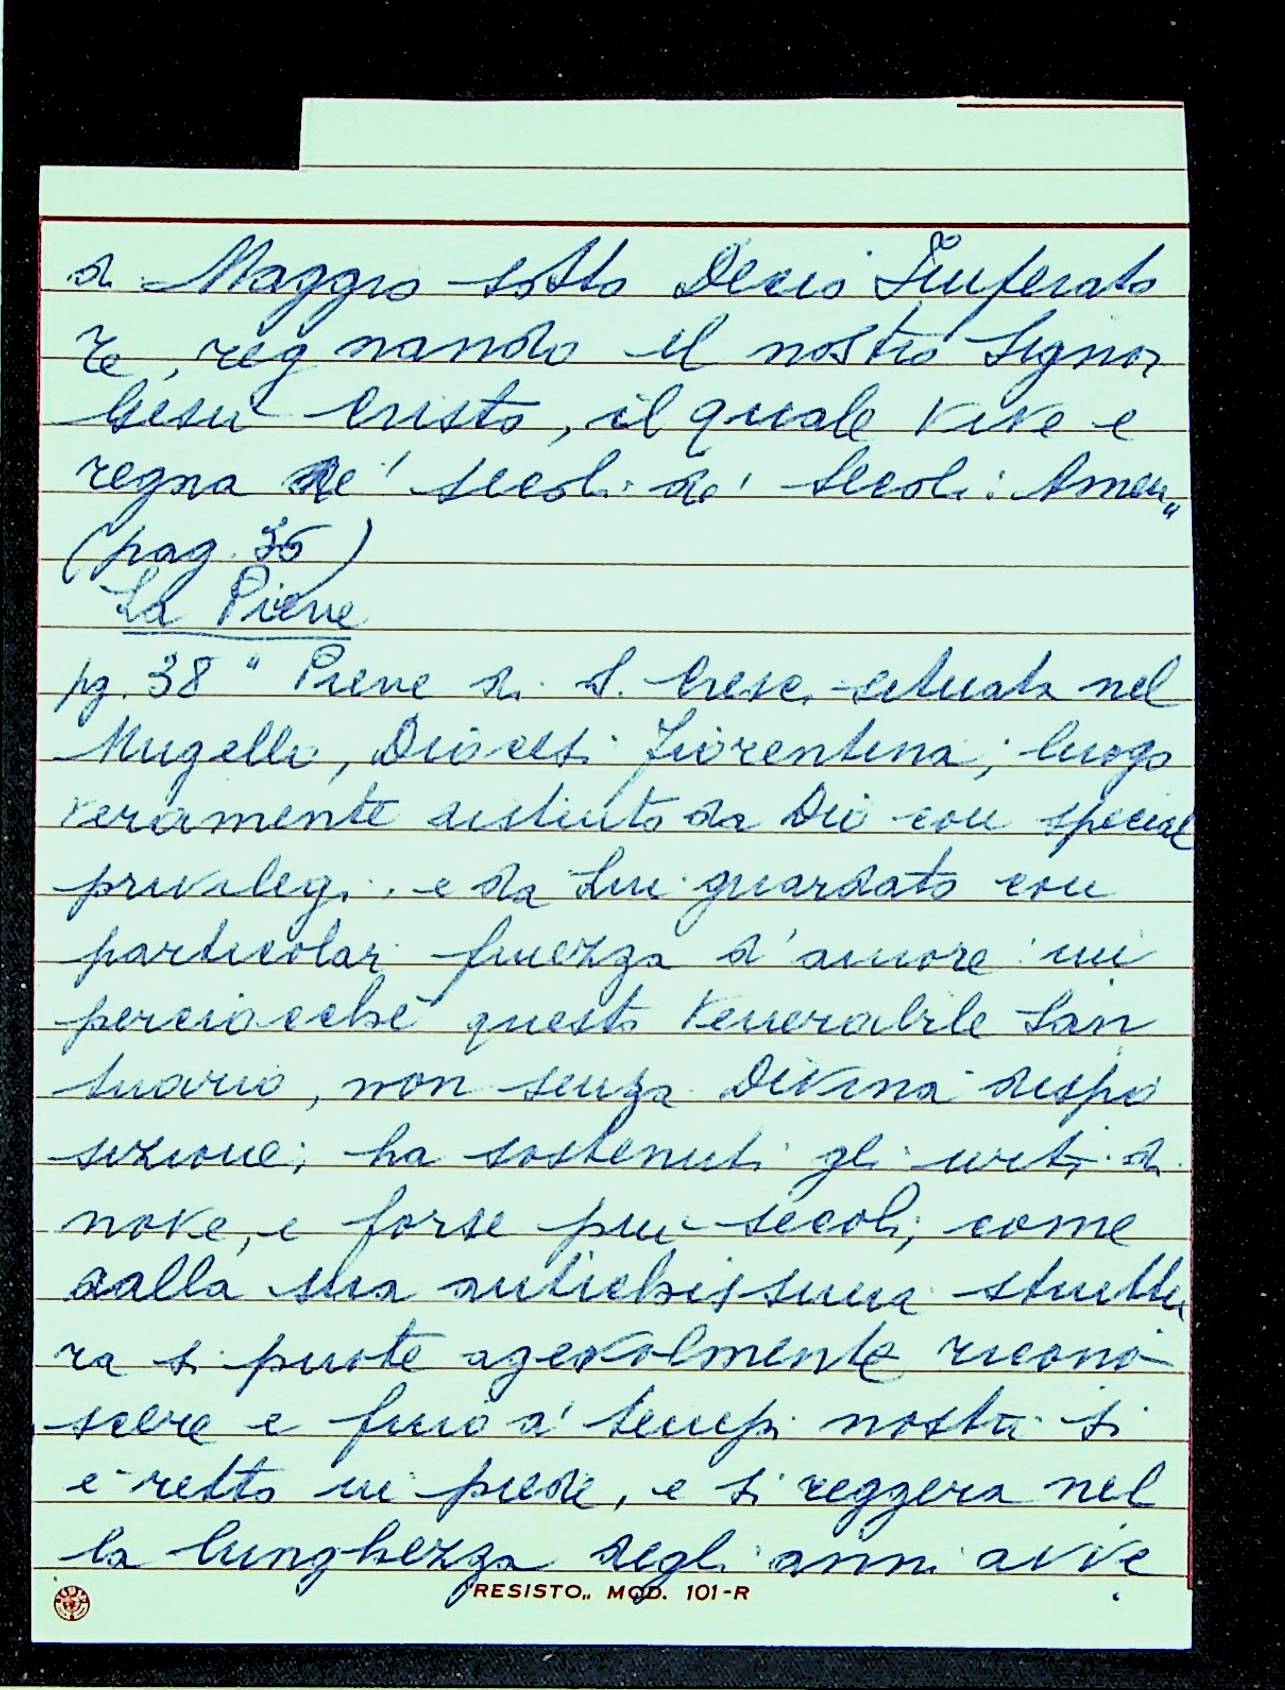 di Maggio sotto Decio Imperato
re, regnando il nostro Signor
Gesù Cristo, il quale vive e
regna ne' secoli de' secoli: Amen„
(pag. 36)
La Pieve
pg. 38 " Pieve di S. Cresci situata nel
Mugello, Diocesi Fiorentina; luogo
veramente distinto da Dio con special
privilegi, e da Lui guardato con
particolar finezza d'amore im
perciocchè questo Venerabile San
tuario, non senza Divina dispo
sizione; ha sostenuti gli urti di
nove, e forse più secoli; come
dalla sua antichissima struttu
ra si puote agevolmente ricono
scere e fino a' tempi nostri si
è retto in piede, e si reggerà nel
la lunghezza degli anni avve
"RESISTO„ MOD. 101-R